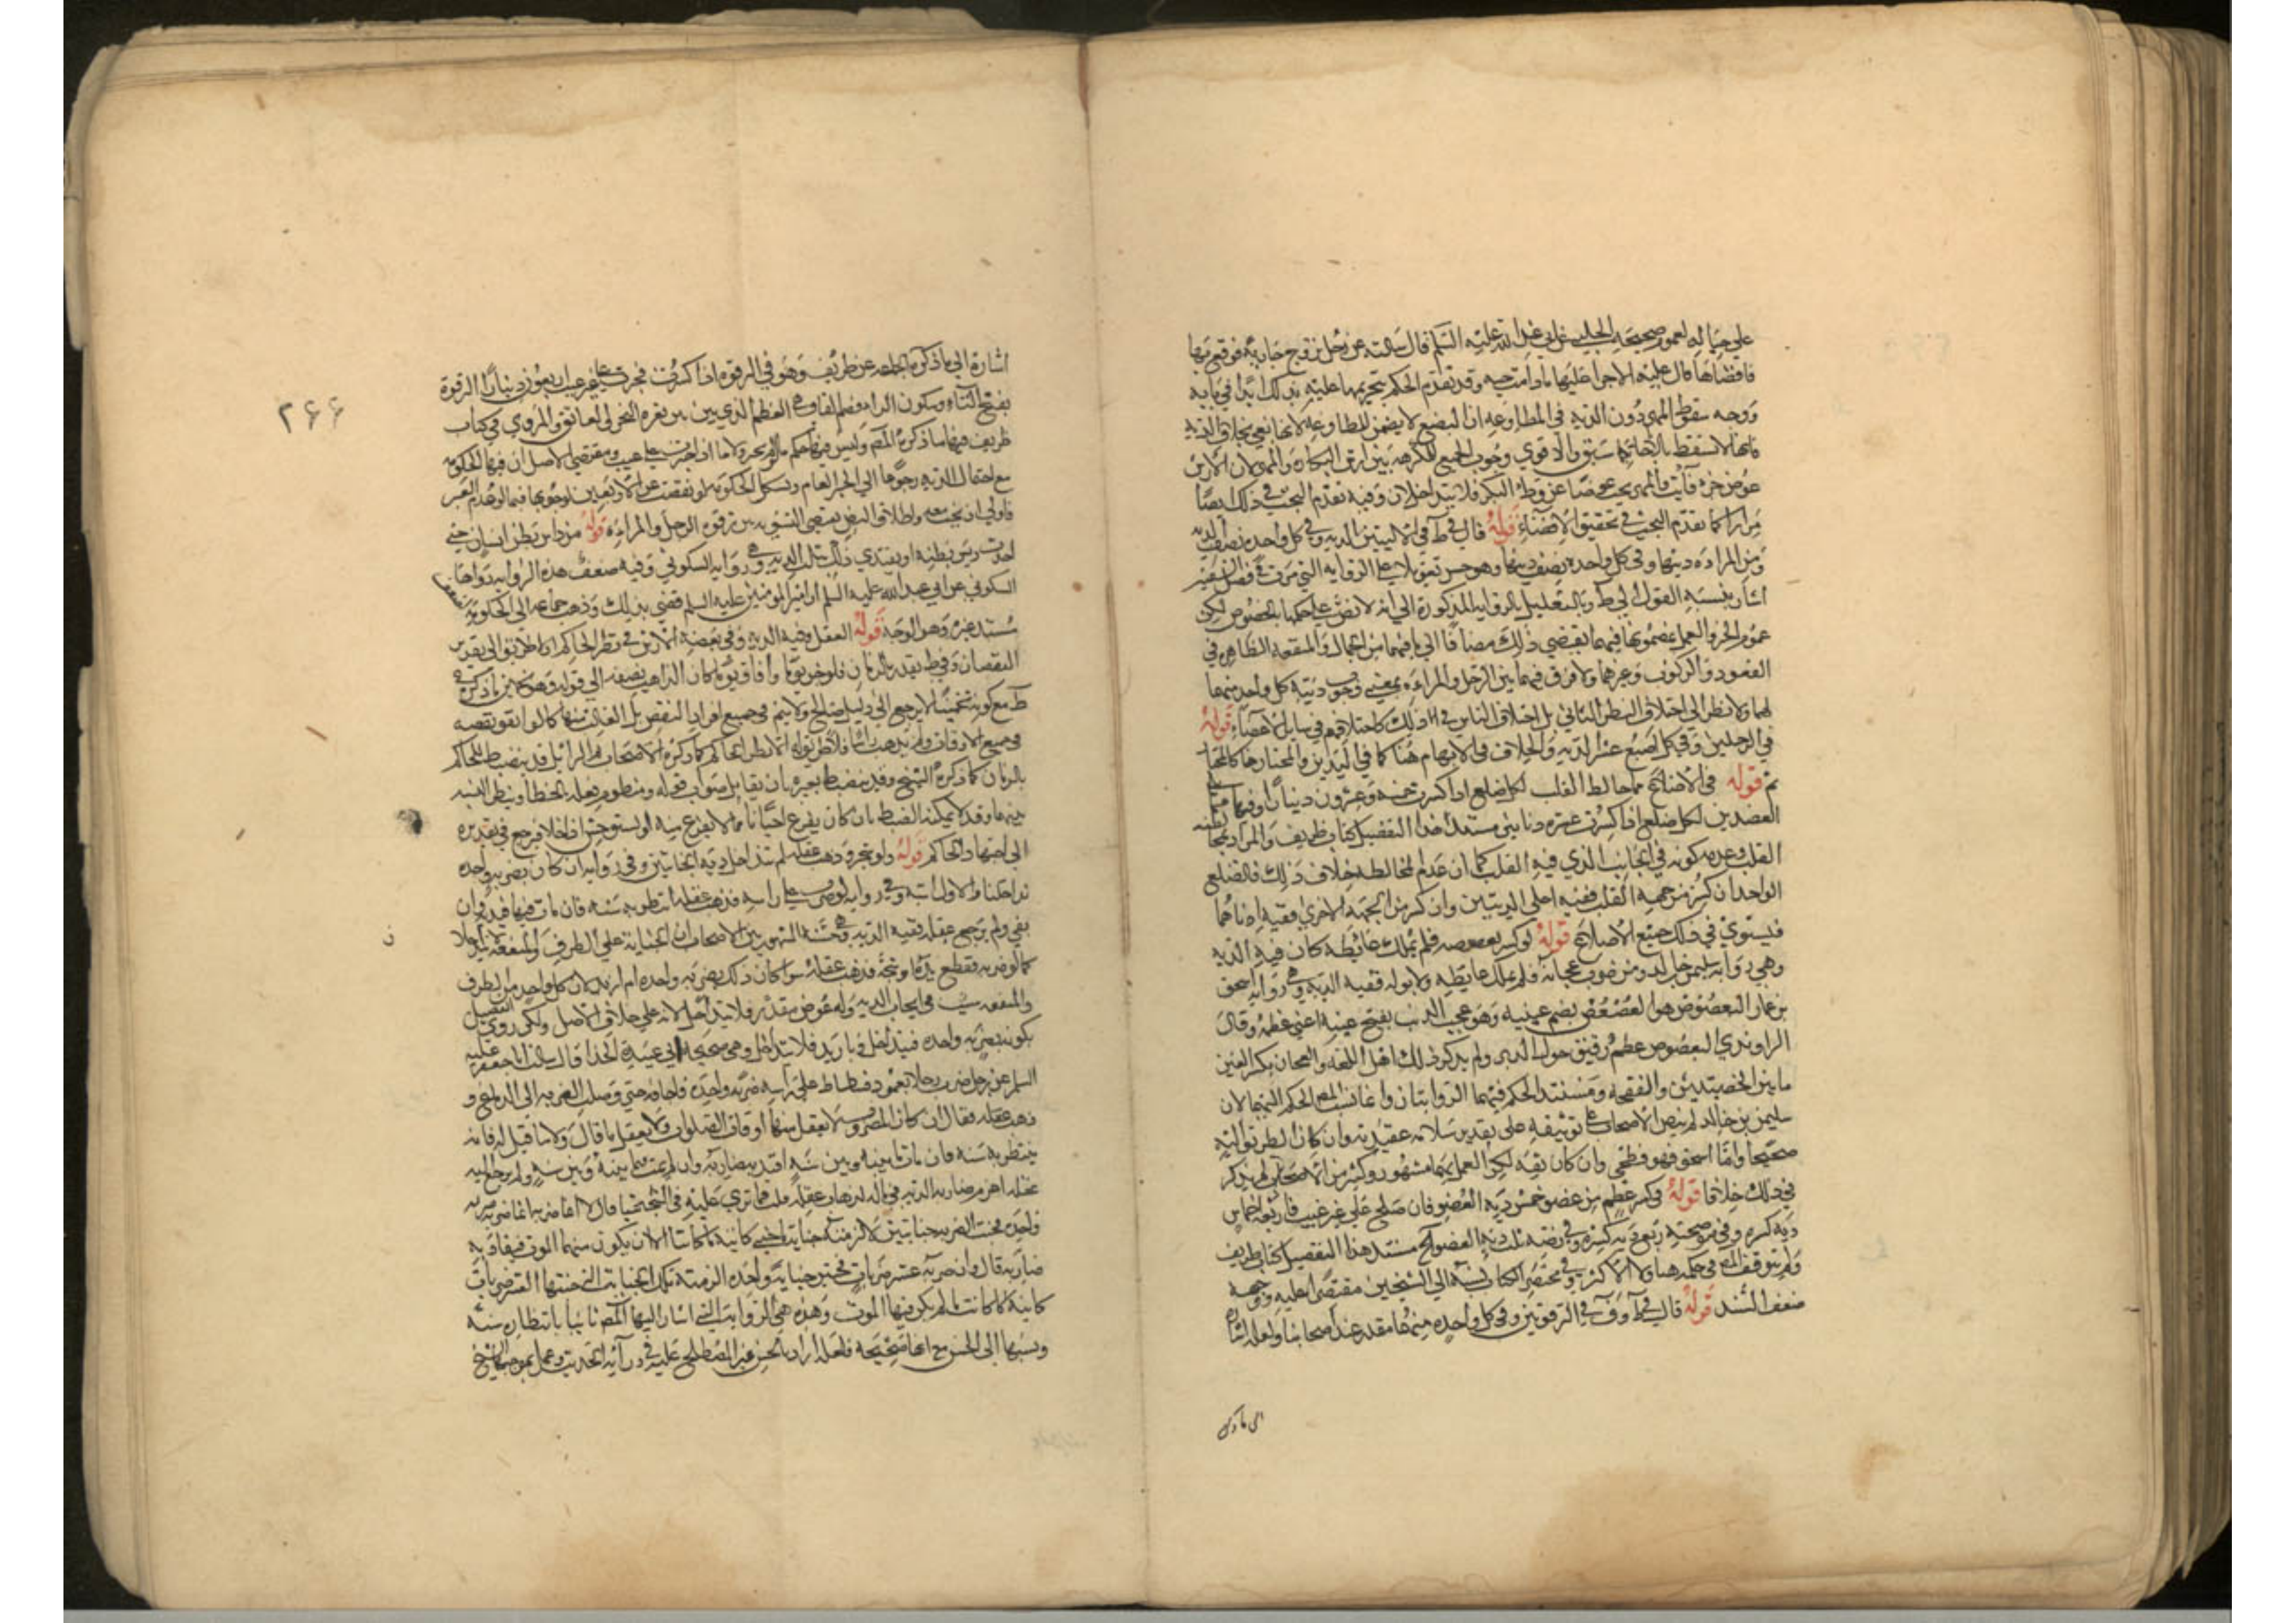 على حباله لعموم صحيحة الحلبي عن ابي عبد الله عليه السلام قال سالته عن رجل تزوج جارية فوقع بها
فافضاها قال عليه الاجرا عليها مادامت حيه وقد تقدم الحكم بتحريمها عليه بذلك ابدا في بابه
ووجه سقوط المهر دون الديه في المطاوعه ان البضع لا يضمن للمطاوعه لانها بغي بخلاف الديه
فانها لا تسقط كما سبق والاقوي وجوب الجميع للمكرهه بين ارش البكاره والمهر لان الارش
عوض جزء فايت والمهر يجب عوضا عن وطء البكر فلا يتداخلان وفيه تقدم البحث في ذلك ايضا
مرارا كما تقدم البحث في تحقيق الافضاء قوله قال في ط في الاليتين الديه وفي كل واحده نصف الديه
ومن المراه ديتها وفي كل واحده نصف ديتها وهو حسن تعويلا على الروايه التي مرت في فصل الشفتين
اشار بنسبه القول الى ط وبالتعليل بالروايه المذكورة الى انه لا نص على حكمها بالخصوص لكن
عموم الخبر والعمل بمضمونها فيهما يقتضي ذلك مضافا الى ما فيهما من الجمال والمنفعه الظاهره في
القعود والركوب وغيرهما ولا فرق فيهما بين الرجل والمراه بمعنى وجوب دية كل واحد منهما
لهما ولا نظر الى اختلاف البطن الناتي بل اختلاف الناس في ذلك كاختلافهم في ساير الاعضاء قوله
في الرجلين وفي كل اصبع عشر الديه والخلاف في الابهام هنا كما في اليدين والمختار هنا كالمختار
ثم قوله في الاضلاع مما خالط القلب لكل ضلع اذا كسرت خمسه وعشرون دينارا وفيما
العضدين لكل ضلع اذا كسرت عشره دنانير مستند هذا التفصيل كتاب ظريف والمراد بمخالطته
القلب وعدمه كونه في الجانب الذي فيه القلب كما ان عدم المخالطه خلاف ذلك فالضلع
الواحد ان كسر من جهة القلب ففيه اعلى الديتين وان كسر من الجهة الاخرى ففيه ادناهما
فيستوي في ذلك جميع الاضلاع قوله لو كسر بعصوصه فلم يملك غائطه كان فيه الديه
وهي روايه سليمن بن خالد ومن ضرب عجانه فلم يملك غايطه ولا بوله ففيه الدية وهي روايه اسحق
بن عمار البعصوص هو العصعص بضم عينيه وهو عجب الذنب بفتح عينه اعني عظمه وقال
الراوندي البعصوص عظم رقيق حول الدبر ولم يذكر ذلك اهل اللغه والعجان بكسر العين
ما بين الخصيتين والفقحه ومستند الحكم فيهما الروايتان وانما نسب المص الحكم اليهما لان
سليمن بن خالد لم ينص الاصحاب على توثيقه على تقدير سلامة عقيدته وان كان الطريق اليه
صحيحا واما اسحق فهو فطحي وان كان ثقه لكن العمل بهما مشهور وكثير من الاصحاب لم يذكر
في ذلك خلافا قوله في كسر عظم من عضو خمس دية العضو فان صلح على غير عيب فاربعه اخماس
دية كسره وفي موضحته ربع دية كسره وفي رضه ثلث دية العضو الخ مستند هذا التفصيل كتاب ظريف
ولم يتوقف المص في حكمه هنا ولا الاكثر وفي مختصر الكتاب نسبه الى الشيخين مقتصرا عليه ووجهه
ضعف السند قوله قال في ط وف في الترقوتين وفي كل واحده منهما مقدر عند اصحابنا ولعله اشاره
الى ما ذكره
٢٦۶
اشارة الى ما ذكره الجماعه عن ظريف وهو في الترقوه اذا كسرت فجبرت على غير عيب اربعون دينارا الترقوة
بفتح التاء وسكون الراء وضم القاف هي العظم الذي بين ثغرة النحر والعاتق والمروي في كتاب
ظريف فيهما ما ذكره المص وليس فيه حكم ما لو لم يجبر ولا ما اذا جبرت على عيب ومقتضى الاصل ان فيها الحكومه
مع احتمال الديه رجوعا الى الخبر العام ويشكل الحكومه لو نقصت عن الاربعين لوجوبها فيما لو عدم العيب
فاولى ان تجب معه واطلاق النص يقتضي التسويه بين ترقوه الرجل والمراه قوله من داس بطن انسان حتى
احدث ديس بطنه او يفتدي ذلك بثلث الديه وهي روايه السكوني وفيه ضعف هذه الروايه رواها
السكوني عن ابي عبد الله عليه السلم ان امير المومنين عليه السلم قضى بذلك وذهب جماعه الى الحكومه لضعف
مستند غيره وهو الوجه قوله العقل وفيه الديه وفي بعضه الارش في نظر الحاكم اذ لا طريق الى تقدير
النقصان وفي ط يقدر بالزمان فلو جن يوما وافاق يوما كان الذاهب نصفه الى قوله وهو تخمين ما ذكره في
ط مع كونه تخمينا لا يرجع الى دليل صالح ولا يتم في جميع افراد النقص بل الغالب منها كما لو اتفق نقصه
في جميع الاوقات ولم يذهب راسا فلا طريق له الا نظر الحاكم كما ذكره الاصحاب فالزائل قد ينضبط للحاكم
بالزمان كما ذكره الشيخ وقد ينضبط بغيره بان يقابل صواب قوله ومنظوم فعله بالخطا وينظر النسبه
بينهما وقد لا يمكنه الضبط بان كان يفزع احيانا مما لا يفزع منه او يستوحش اذا خلا فيرجع في تقديره
الى اجتهاد الحاكم قوله ولو شجه وذهب عقله لم تتداخل دية الجنايتين وفي روايه ان كان بضربه واحده
تداخلتا والاول اشبه وفي روايه لو ضرب على راسه فذهب عقله انتظر به سنه فان مات فيها قيد به وان
بقي ولم يرجع عقله ففيه الديه وهي حسنة المشهور بين الاصحاب ان الجناية على الطرف والمنفعه لا يتداخلا
كما لو ضربه فقطع يده او شجه فذهب عقله سواء كان ذلك بضربه واحده ام ازيد لان كل واحد من الطرف
والمنفعه سبب في ايجاب الديه وله عوض مقدر فلا يتداخل لانه على خلاف الاصل ولكن روي التفصيل
بكونه بضربه واحده فيتداخل وبازيد فلا يتداخل وهي صحيحة ابي عبيدة الحذا قال سالت ابا جعفر عليه
السلم عن رجل ضرب رجلا بعمود فسطاط على راسه ضربه واحده فاجافه حتى وصلت الضربه الى الدماغ و
ذهب عقله فقال ان كان المضروب لا يعقل منها اوقات الصلوات ولا يعقل ما قال ولا ما قيل له فانه
ينتظر به سنه فان مات ما بينه وبين سنه اقيد به ضاربه وان لم يمت فيما بينه وبين سنه ولم يرجع اليه
عقله اغرم ضاربه الديه في ماله لذهاب عقله قلت فما ترى عليه في الشجة شيا قال لا انما ضربه ضربه
واحده فجنت الضربه جنايتين فالزمته اغلظ الجنايتين
ضاربه قال وان ضربه عشر ضربات فجنين جناية واحده الزمته تلك الجناية التي جنتها العشر ضربات
كاينة ما كانت ما لم يكن فيها الموت وهذه هي الرواية التي اشار اليها المص ثانيا بانتظاره سنة
ونسبها الى الحسن مع انها صحيحه فلعله اراد بالحسن غير المصطلح عليه في دراية الحديث وعمل بموجبها الشيخ